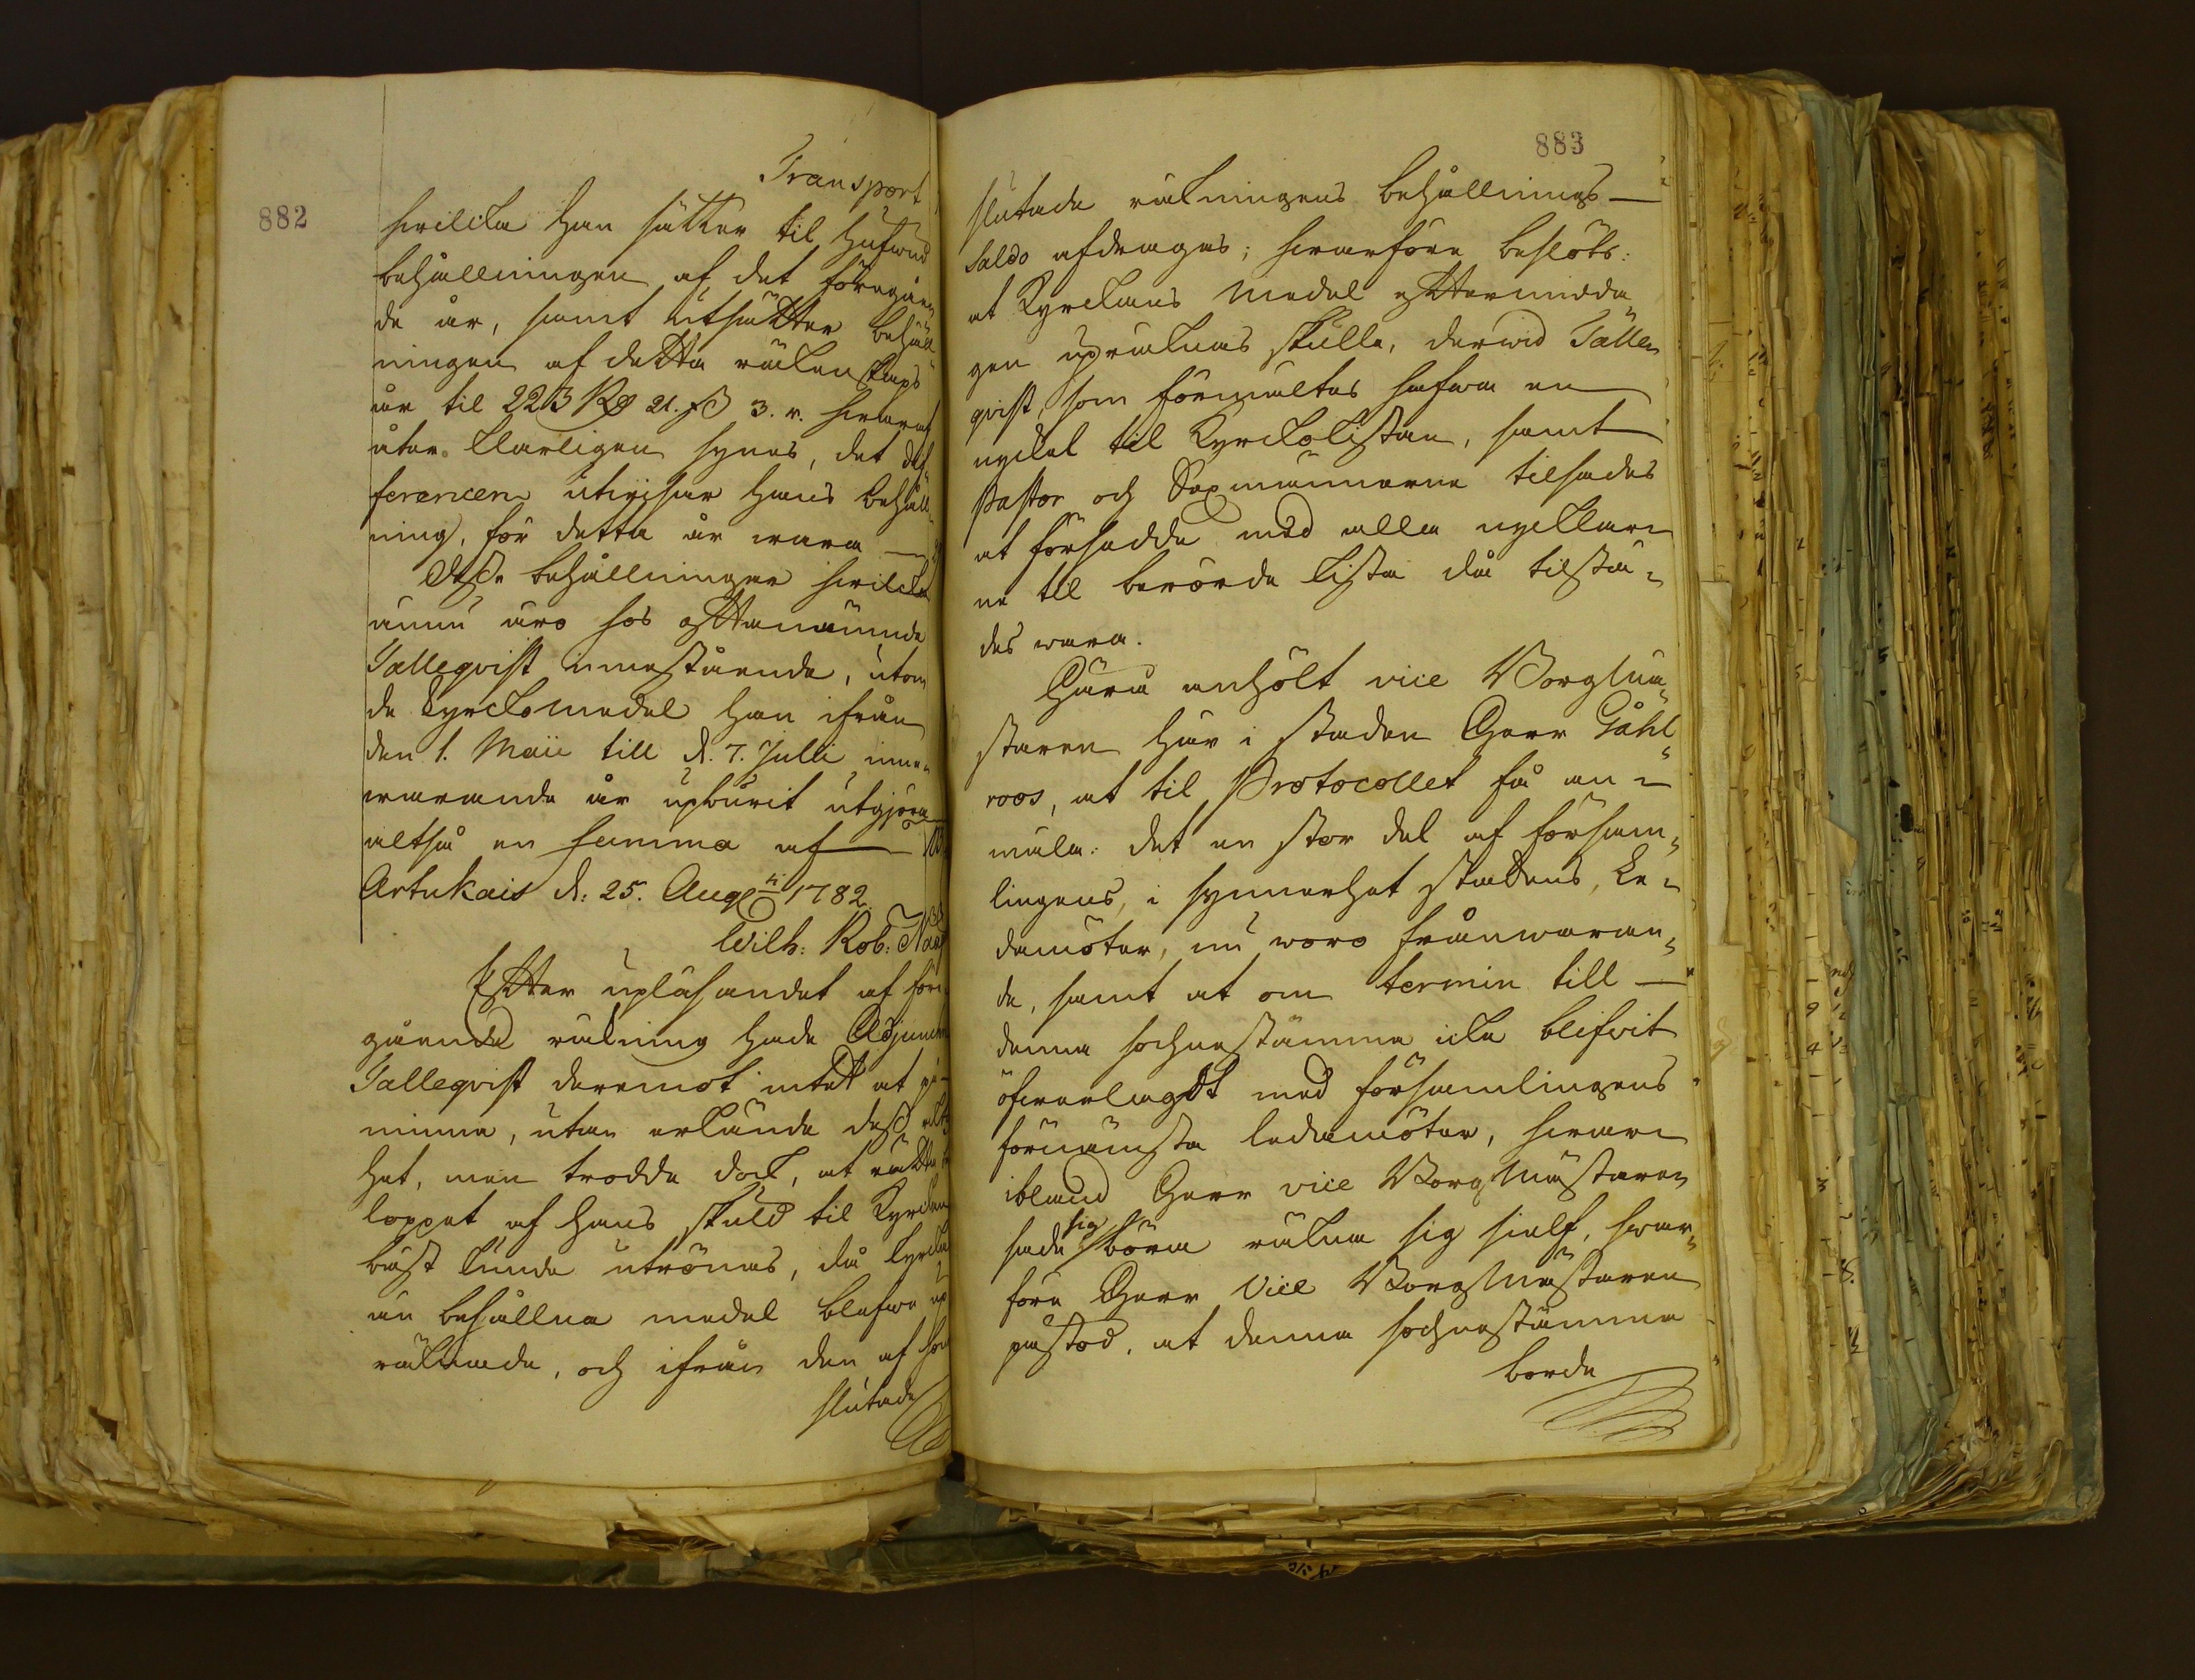 882
Transport
hvilcka han sätter til hufwud
behållningen af det föregåen
de år, samt utsätter behåll
ningen af detta räkenskaps
år til 223 Rd 21. ß 3. r. hvaraf
åter klarligen synes, det dif
ferencen utvisar hans behåll
ning, för detta år wara —
Desse behållningar hvilcka
ännu äro hos oftanämnde
Tallegvist innestående, utom
de Kyrckomedel han ifrån
den 1. Maii till d. 7. Julii inne-
warande år upburit utgjöra
altså en summa af —
Artukais d: 25. Augusti 1782.
Wilh: Rob:
Efter upläsandet af före
gående räkning hade Adjuncten
Tallegvist deremot intet at på
minna, utan erkände dess rikti
het, men trodde dock, at rätta
loppet af hans skuld til Kyrckan
bäst kunde utrönas, då Kyrckans
än behållna medel blefwo up
räknade, och ifrån den af hon
slutade
883
slutade räkningens behållnings —
saldo afdrages; hvarföre beslöts:
at Kyrckans medel eftermidda
gen upräknas skulle, derwid Talle
qvist, som förmältes hafwa en
nyckel til Kyrckokistan, samt
Pastor och Sexmännerne tilsades
at försedde med alla nycklar
ne til berörde kista då tilstä-
des wara.
Härå anhölt vice Borgmä
staren här i staden Herr Gåhl
roos, at til Protocollet få an-
mäla: det en stor del af försam
lingens, i synnerhet stadens, Le-
damöter, nu woro frånwaran
de, samt at om termin till —
denna sochnestämma icke blifvit
öfverlagdt med församlingens
förnämsta ledamöter, hvari
ibland Herr vice Borgmästaren
sade sig böra räkna sig sielf, hvar
före Herr Vice Borgmästaren
påstod, at denna sochnestämma
borde